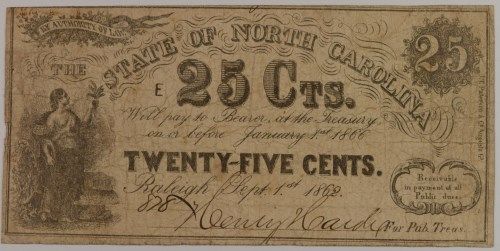 BY AUTHORITY OF LAW.
THE STATE OF NORTH CAROLINA
25
E
25 CTS.
Will pay to Bearer, at the Treasury
on or before January 1st 1866
TWENTY-FIVE CENTS.
Raleigh Sept. 1st 1862
Receivable
in payment of all
Public dues.
828
Henry Hardie For Pub. Treas.